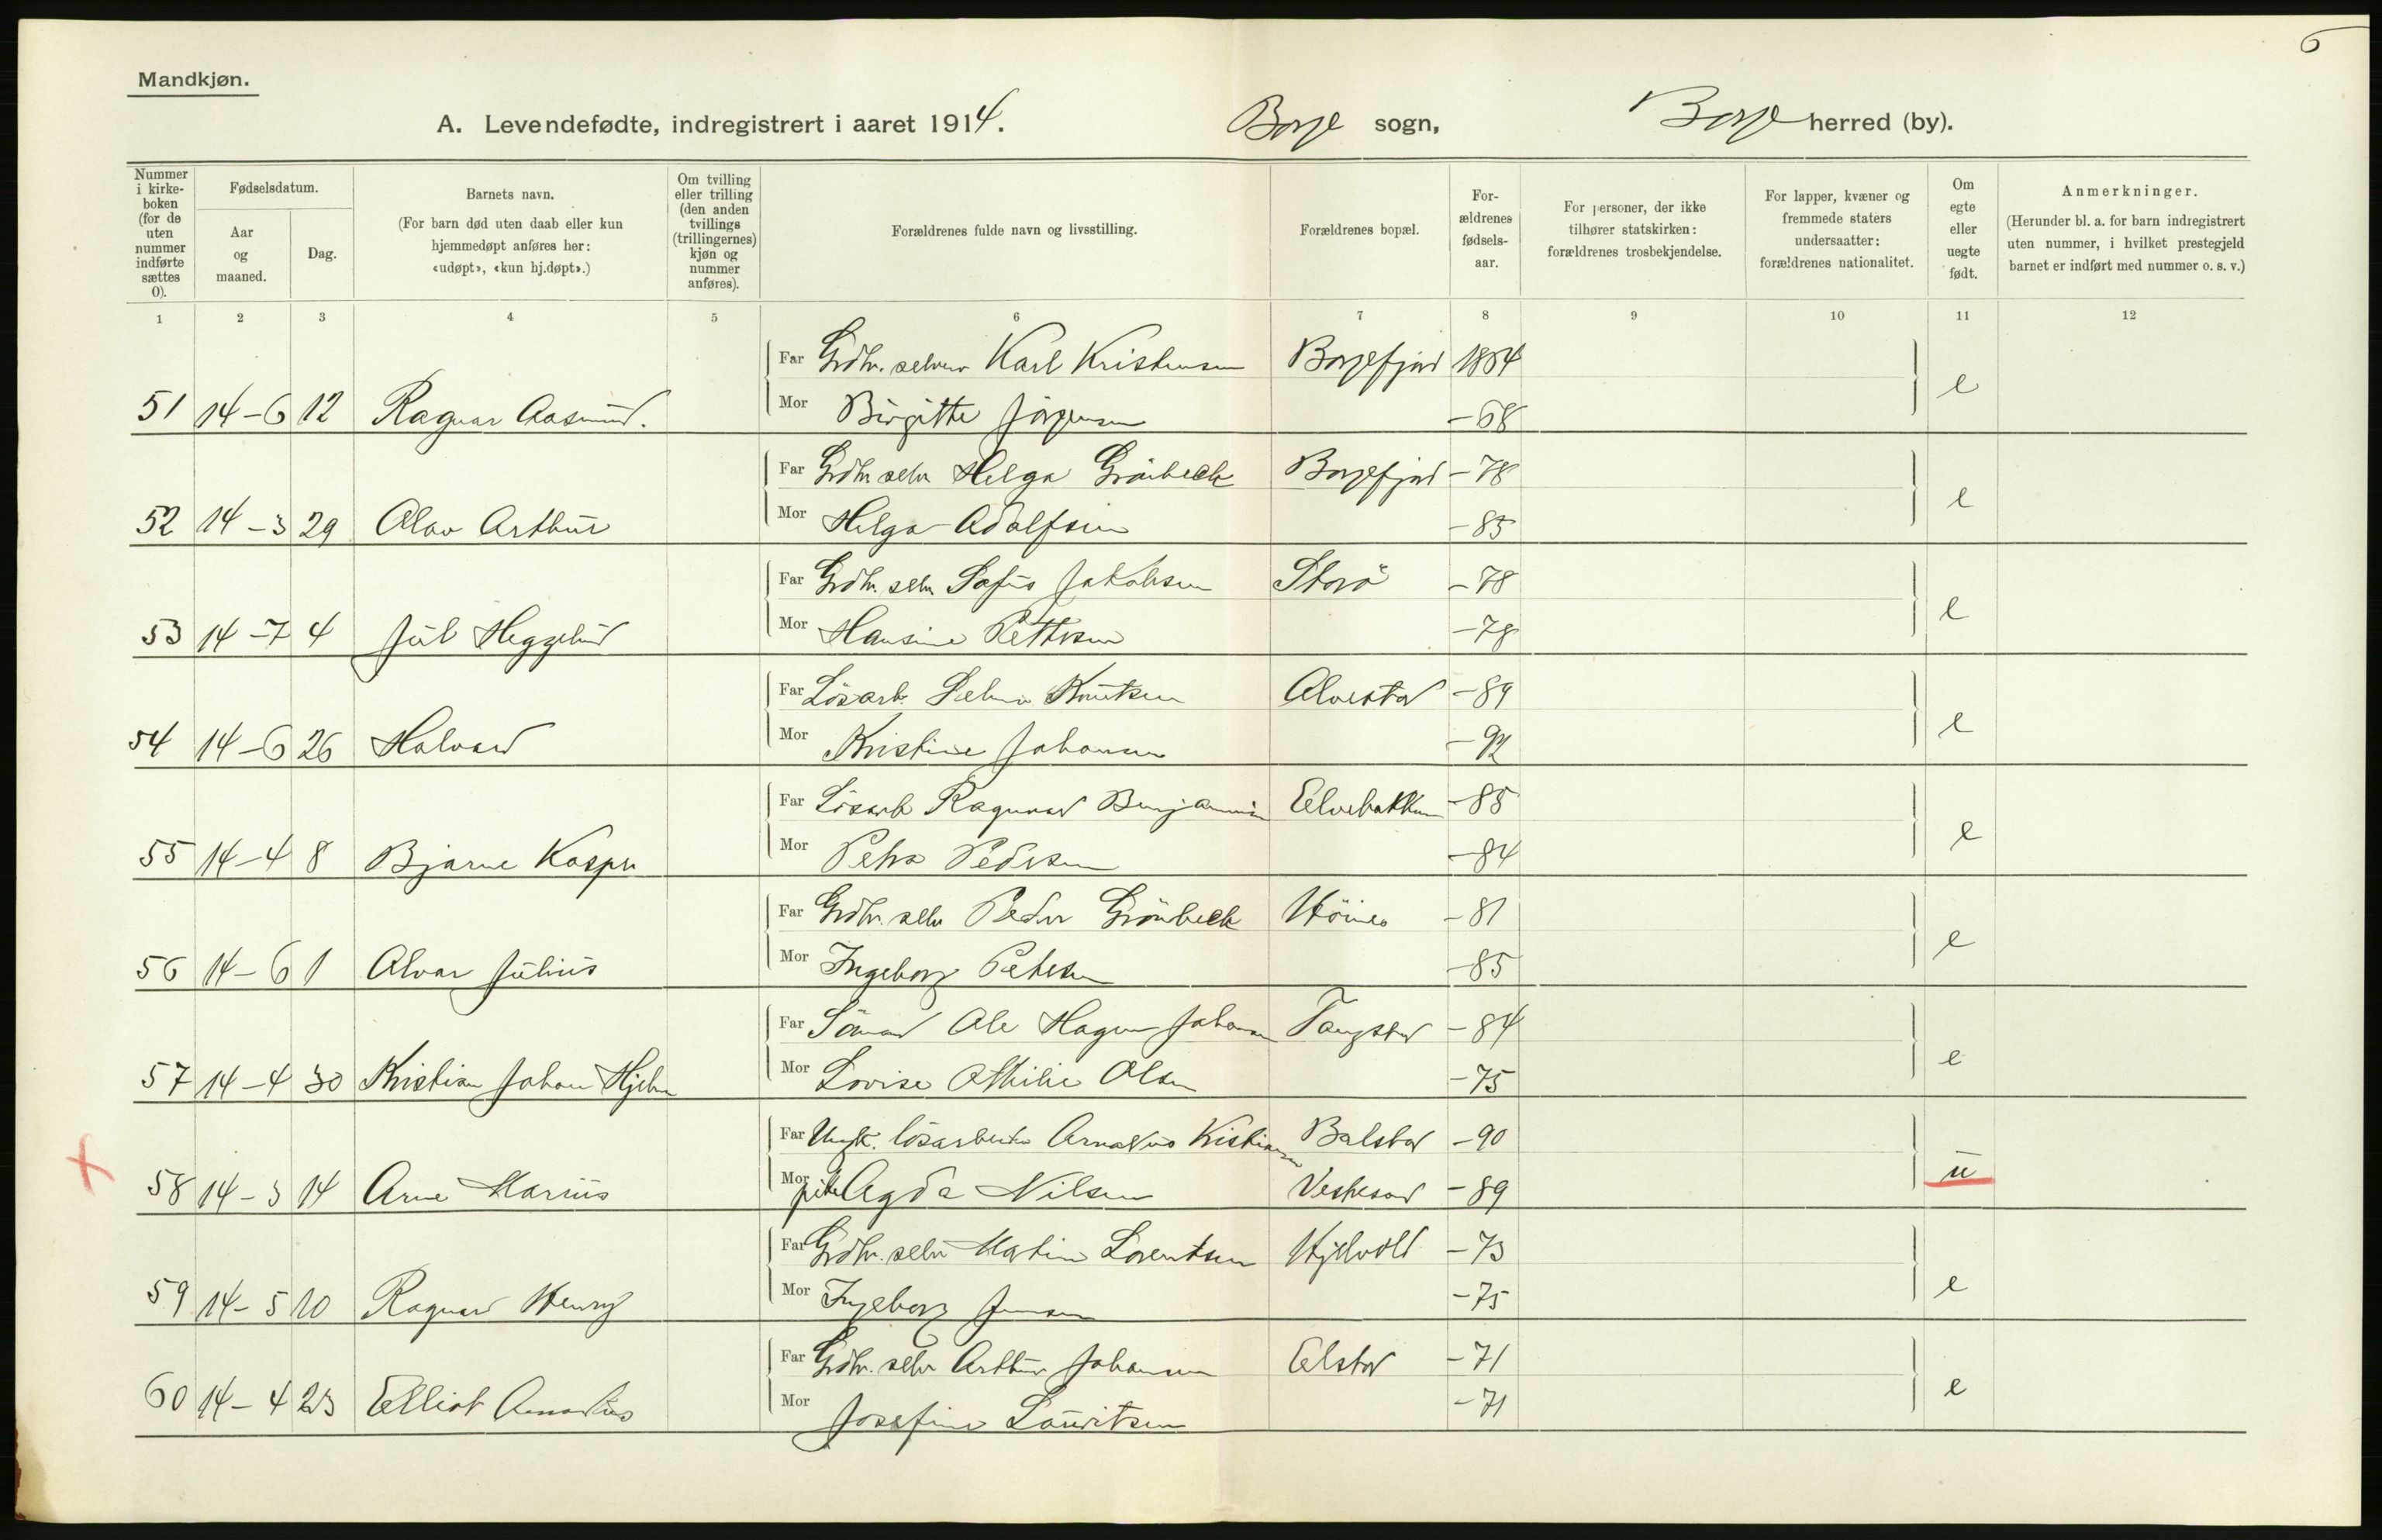 6
Mandkjøn.
A. Levendefødte, indregistrert i aaret 1914. Borge sogn, Borge herred (by).
Nummer i kirkeboken (for de uten nummer indførte sættes 0).
Fødselsdatum.
Aar og maaned.
Dag.
Barnets navn.
(For barn død uten daab eller kun hjemmedøpt anføres her: «udøpt», «kun hj.døpt».)
Om tvilling eller trilling (den anden tvillings (trillingernes) kjøn og nummer anføres).
Forældrenes fulde navn og livsstilling.
Forældrenes bopæl.
Forældrenes fødselsaar.
For personer, der ikke tilhører statskirken: forældrenes trosbekjendelse.
For lapper, kvæner og fremmede staters undersaatter: forældrenes nationalitet.
Om egte eller uegte født.
Anmerkninger.
(Herunder bl. a. for barn indregistrert uten nummer, i hvilket prestegjeld barnet er indført med nummer o. s. v.)
1 2 3 4 5 6 7 8 9 10 11 12
Far Grdbr. selveier Karl Kristensen Borgefjord 1864
51 14-6 12 Ragnar Aasmund. Mor Birgitte Jörgensen -68 e
Far Grdbr selv Helga Grönbeck Borgefjord -78
52 14-3 29 Olav Arthur Mor Helga Adolfsen -85 e
Far Grdbr. selv Sofus Jakobsen Storö -78
53 14-7 4 Jul Heggelund Mor Hansine Pettersen -78 e
Far Lösarb. Selmer Knutsen Alvestad -89
54 14-6 26 Halvard Mor Kristine Johansen -92 e
Far Lösarb Ragnvald Benjaminsen Elvebakken -85
55 14-4 8 Bjarne Kasper Mor Petra Pedersen -84 e
Far Grdbr. selv Peder Grönbeck Höines -81
56 14-6 1 Alvar Julius Mor Ingeborg Petersen -85 e
Far Sömand Ole Hagen Johansen Tangstad -84
57 14-4 30 Kristian Johan Hjelm Mor Lovise Othilie Olsen -75 e
Far Ungk. lösarbeider Arnoldus Kristiansen Balstad -90
58 14-3 14 Arne Marius Mor pike Agda Nilsen Vestresand -89 u
Far Grdbr. selv Martin Lorentsen Hjelvold -73
59 14-5 10 Ragnar Henry Mor Ingeborg Jensen -75 e
Far Grdbr. selv Arthur Johansen Elstad -71
60 14-4 23 Elliot Amandus Mor Josefine Lauritsen -71 e